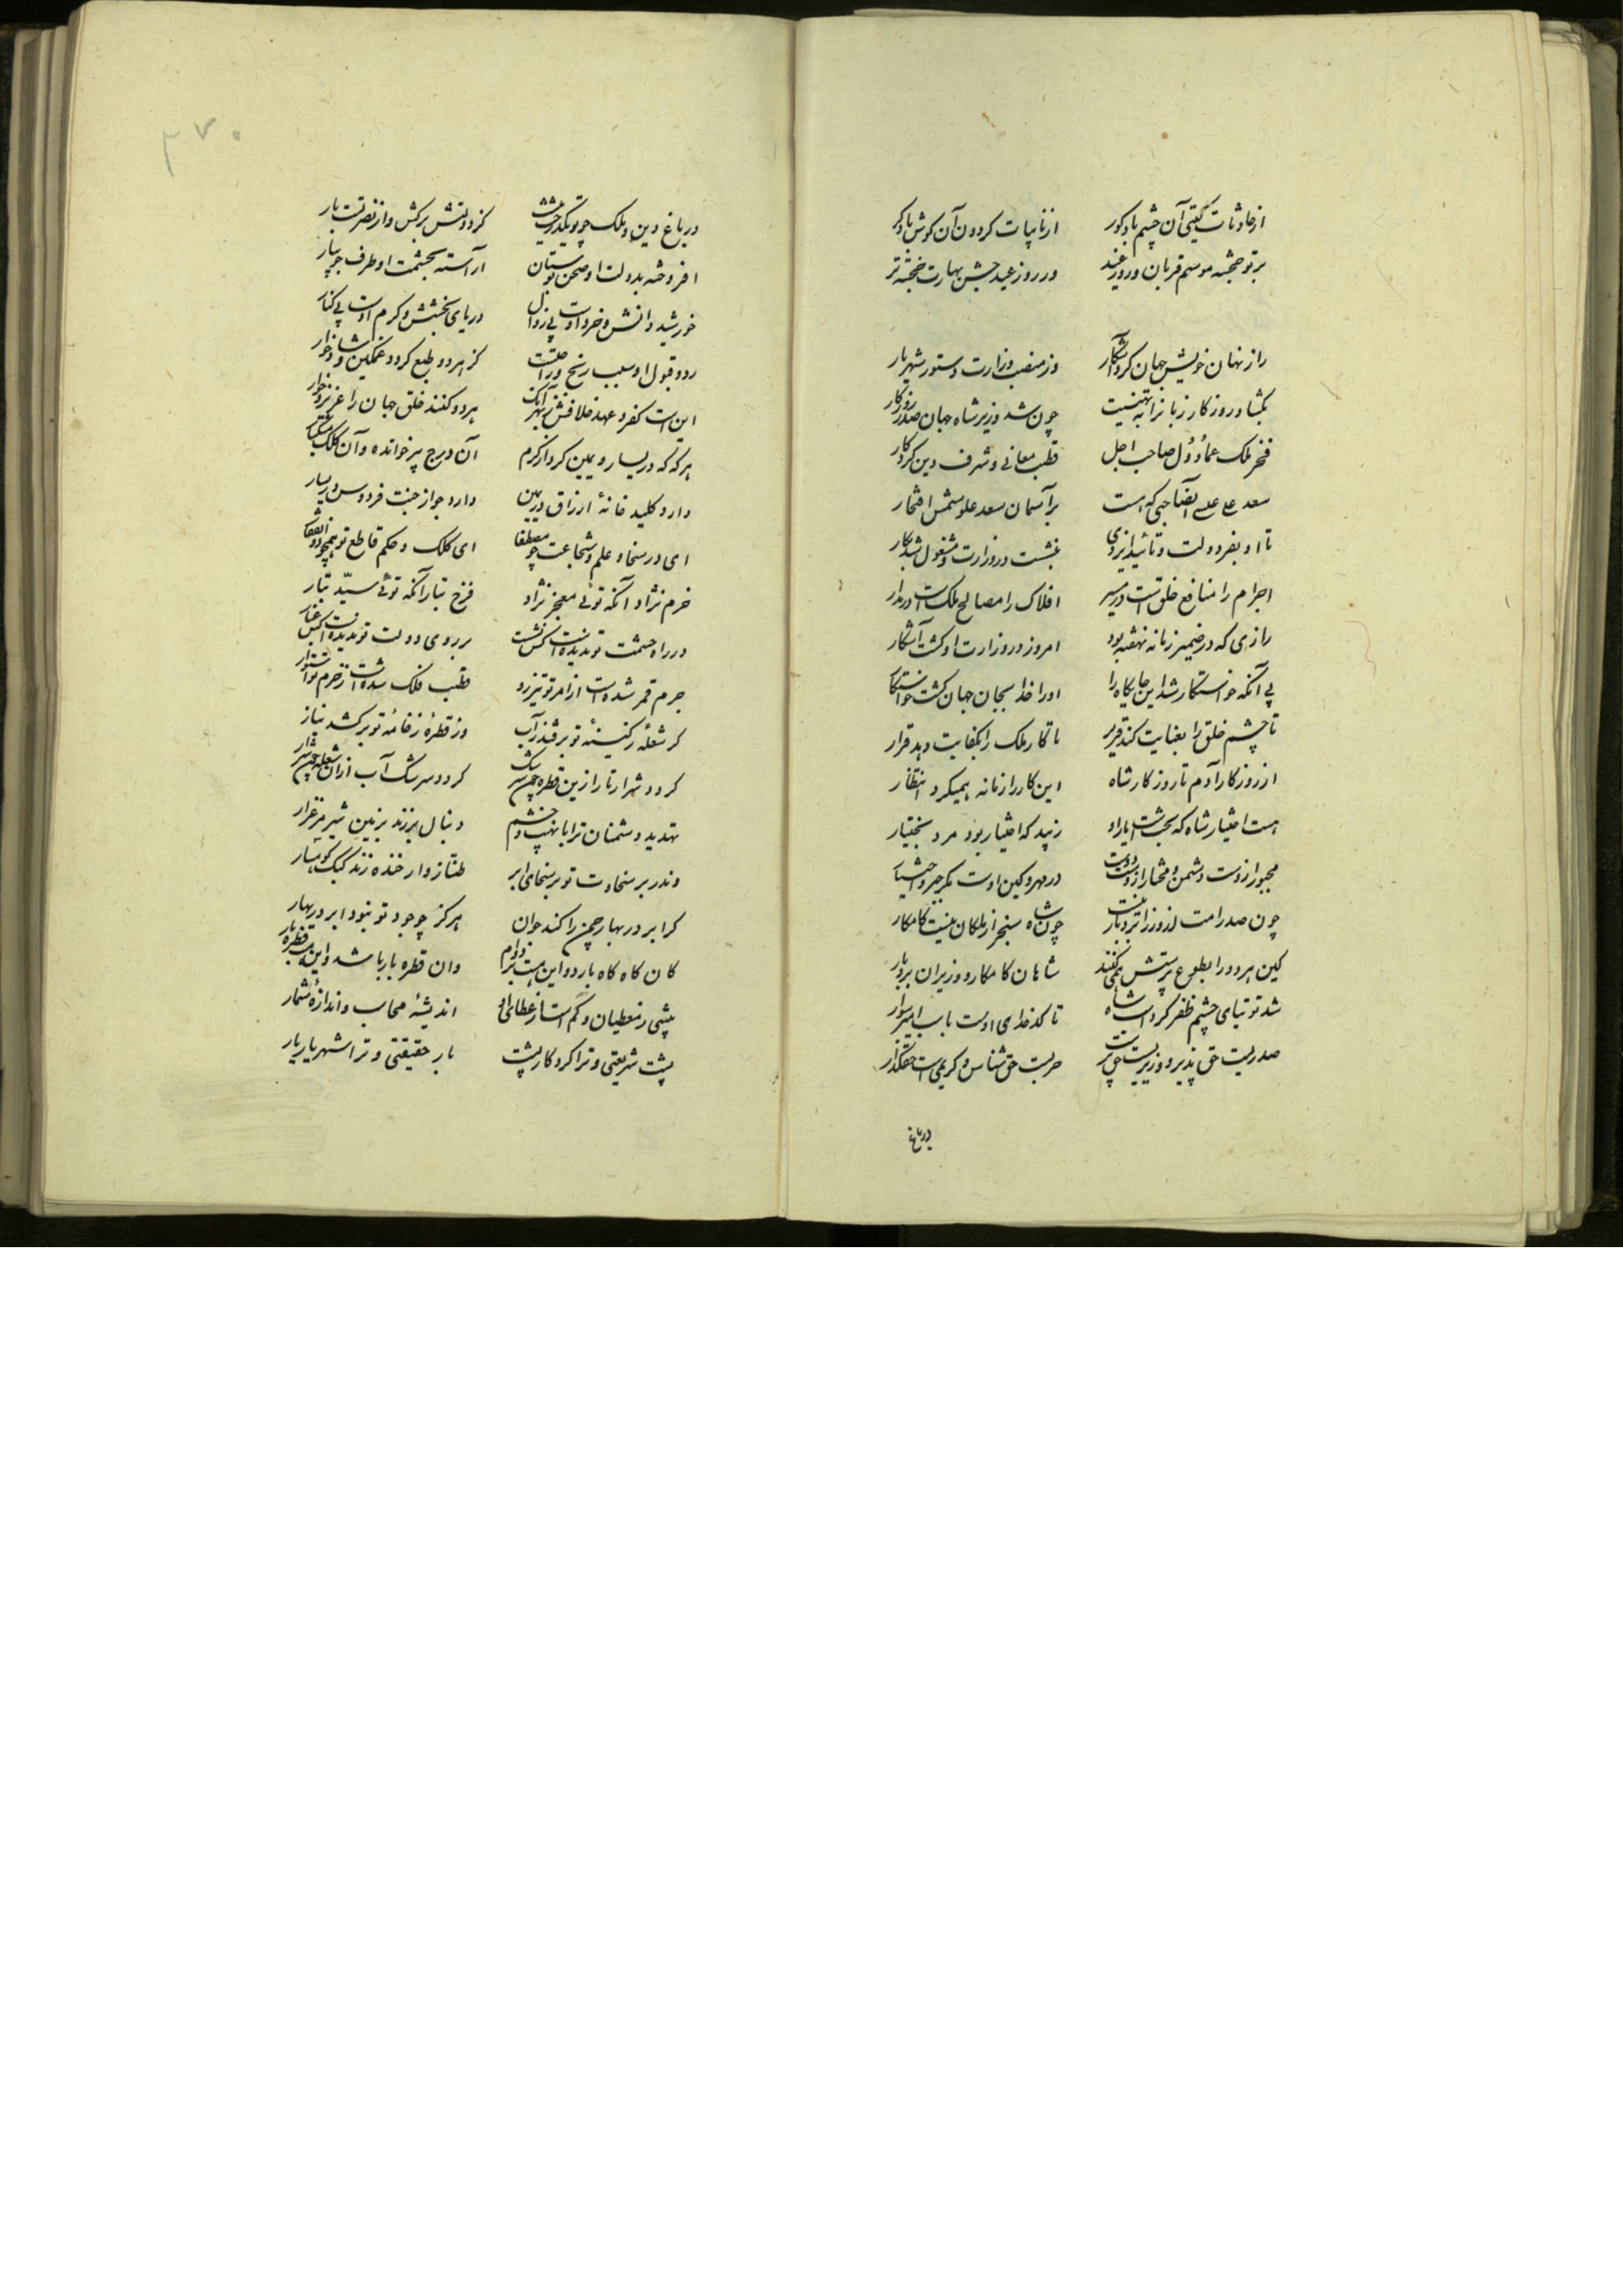 از حادثات گیتی آن چشم باد کور از نایبات کردون آن کوش باد کر
بر تو خجسته موسم قربان و روز عید در روز عید جشن بهارت خجسته تر
راز نهان خویش جهان کرد آشکار در منصب وزارت دستور شهریار
بکشاد روزکار زبانرا به تهنیت چون شد وزیر شاه جهان صدر روزکار
فخر ملک عماد دول صاحب اجل قطب معانی و شرف دین کردکار
سعد علی عیسی آنصاحبی که هست بر آسمان سعد علو شمس افتخار
تا او بفر دولت و تائید ایزدی بنشست در وزارت و مشغول شد بکار
اجرام را منافع خلق است در مسیر افلاک را مصالح ملک است در مدار
رازی که در ضمیر زمانه نهفته بود امروز در وزارت او کشت آشکار
بی آنکه خواستکار شد این جایکاه را او را خدا بجان جهان کشت خواستکار
تا چشم خلق را بعنایت کند قریر تا کار ملک را بکفایت دهد قرار
از روزکار آدم تا روزکار شاه این کار را زمانه همیکرد انتظار
هست اختیار شاه که بخت است یار او زیبد که اختیار بود مرد بختیار
مجبور ازوست دشمن و مختار ازوست دوست در مهر و کین اوست مکر جبر و اختیار
چون صدر امت از وزرا نیست بردبار چون شاه سنجر از ملکان نیست کامکار
کین هر دو را بطوع پرستش همی کنند شاهان کامکار و وزیران بردبار
شد توتیای چشم ظفر کرد اسب شاه تا کدخدای اوست باسب امیر سوار
صدریست حق پذیر و وزیریست حق پرست حریست حق شناس و کریمی است حقکذار
در باغ
۳۷۰
در باغ دین و ملک چو تو یکدرخت کشت کز دولتش برکش و از نصرتست بار
افروخته بدولت او صحن بوستان آراسته بحشمت او طرف جویبار
خورشید دانش و خرد اوست بی زوال دریای بخشش و کرم اوست بی کنار
رد و قبول او سبب رنج و راحتست کز هر دو طبع کردد غمکین و شادخوار
این است کفر و عهد خلافش ز بهر آنک هر دو کنند خلق جهان را عزیز و خوار
هر که که در یسار و یمین کرد از کرم آن درج پیر خوانده و آن کلک مشکبار
دارد کلید خانهٔ ارزاق در یمین دارد جواز جنت فردوس در یسار
ای در سخا و علم و شجاعت چو مصطفا ای کلک و حکم قاطع تو همچو ذوالفقار
خرم نژاد آنکه توئی معجز نژاد فرخ تبار آنکه توئی سیّد تبار
در راه حشمت تو ندیده است کس نشست بر روی دولت تو ندیده است کس غبار
جرم قمر شده است از امر تو تیزرو قطب فلک شده است ز حزم تو استوار
کر شعلهٔ ز کینهٔ تو برفتد بر آب وز قطرهٔ ز خامهٔ تو برکشد نیاز
کردد شرار نار ازین قطره چون سرشک کردد سرشک آب از آن شعله چون شرار
تهدید دشمنان ترا با نهیب و خشم دنبال بر زند بزمین شیر مرغزار
وندر بر سخاوت تو بر سخای ابر طنّازوار خنده زند کبک کوهسار
کر ابر در بهار چمن را کند جوان هرکز چو جود تو نبود ابر در بهار
کان کاه کاه بارد و این هست بر دوام وان قطره بار باشد و این بدره قطره بار
پیشی ز معطیان و کم است از عطای او اندیشهٔ محاسب و اندازهٔ شمار
پشت شریعتی و ترا کردکار پشت یار حقیقتی و ترا شهریار یار